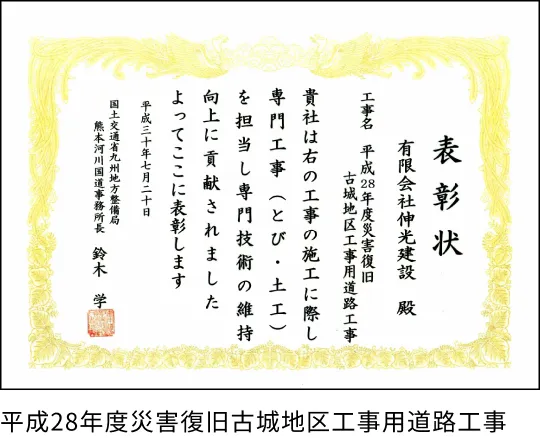 表彰状
有限会社伸光建設 殿
工事名 平成28年度災害復旧
古城地区工事用道路工事
貴社は右の工事の施工に際し
専門工事（とび・土工）
を担当し専門技術の維持
向上に貢献されました
よってここに表彰します
平成三十年七月二十日
国土交通省九州地方整備局
熊本河川国道事務所長 鈴木 学
平成28年度災害復旧古城地区工事用道路工事